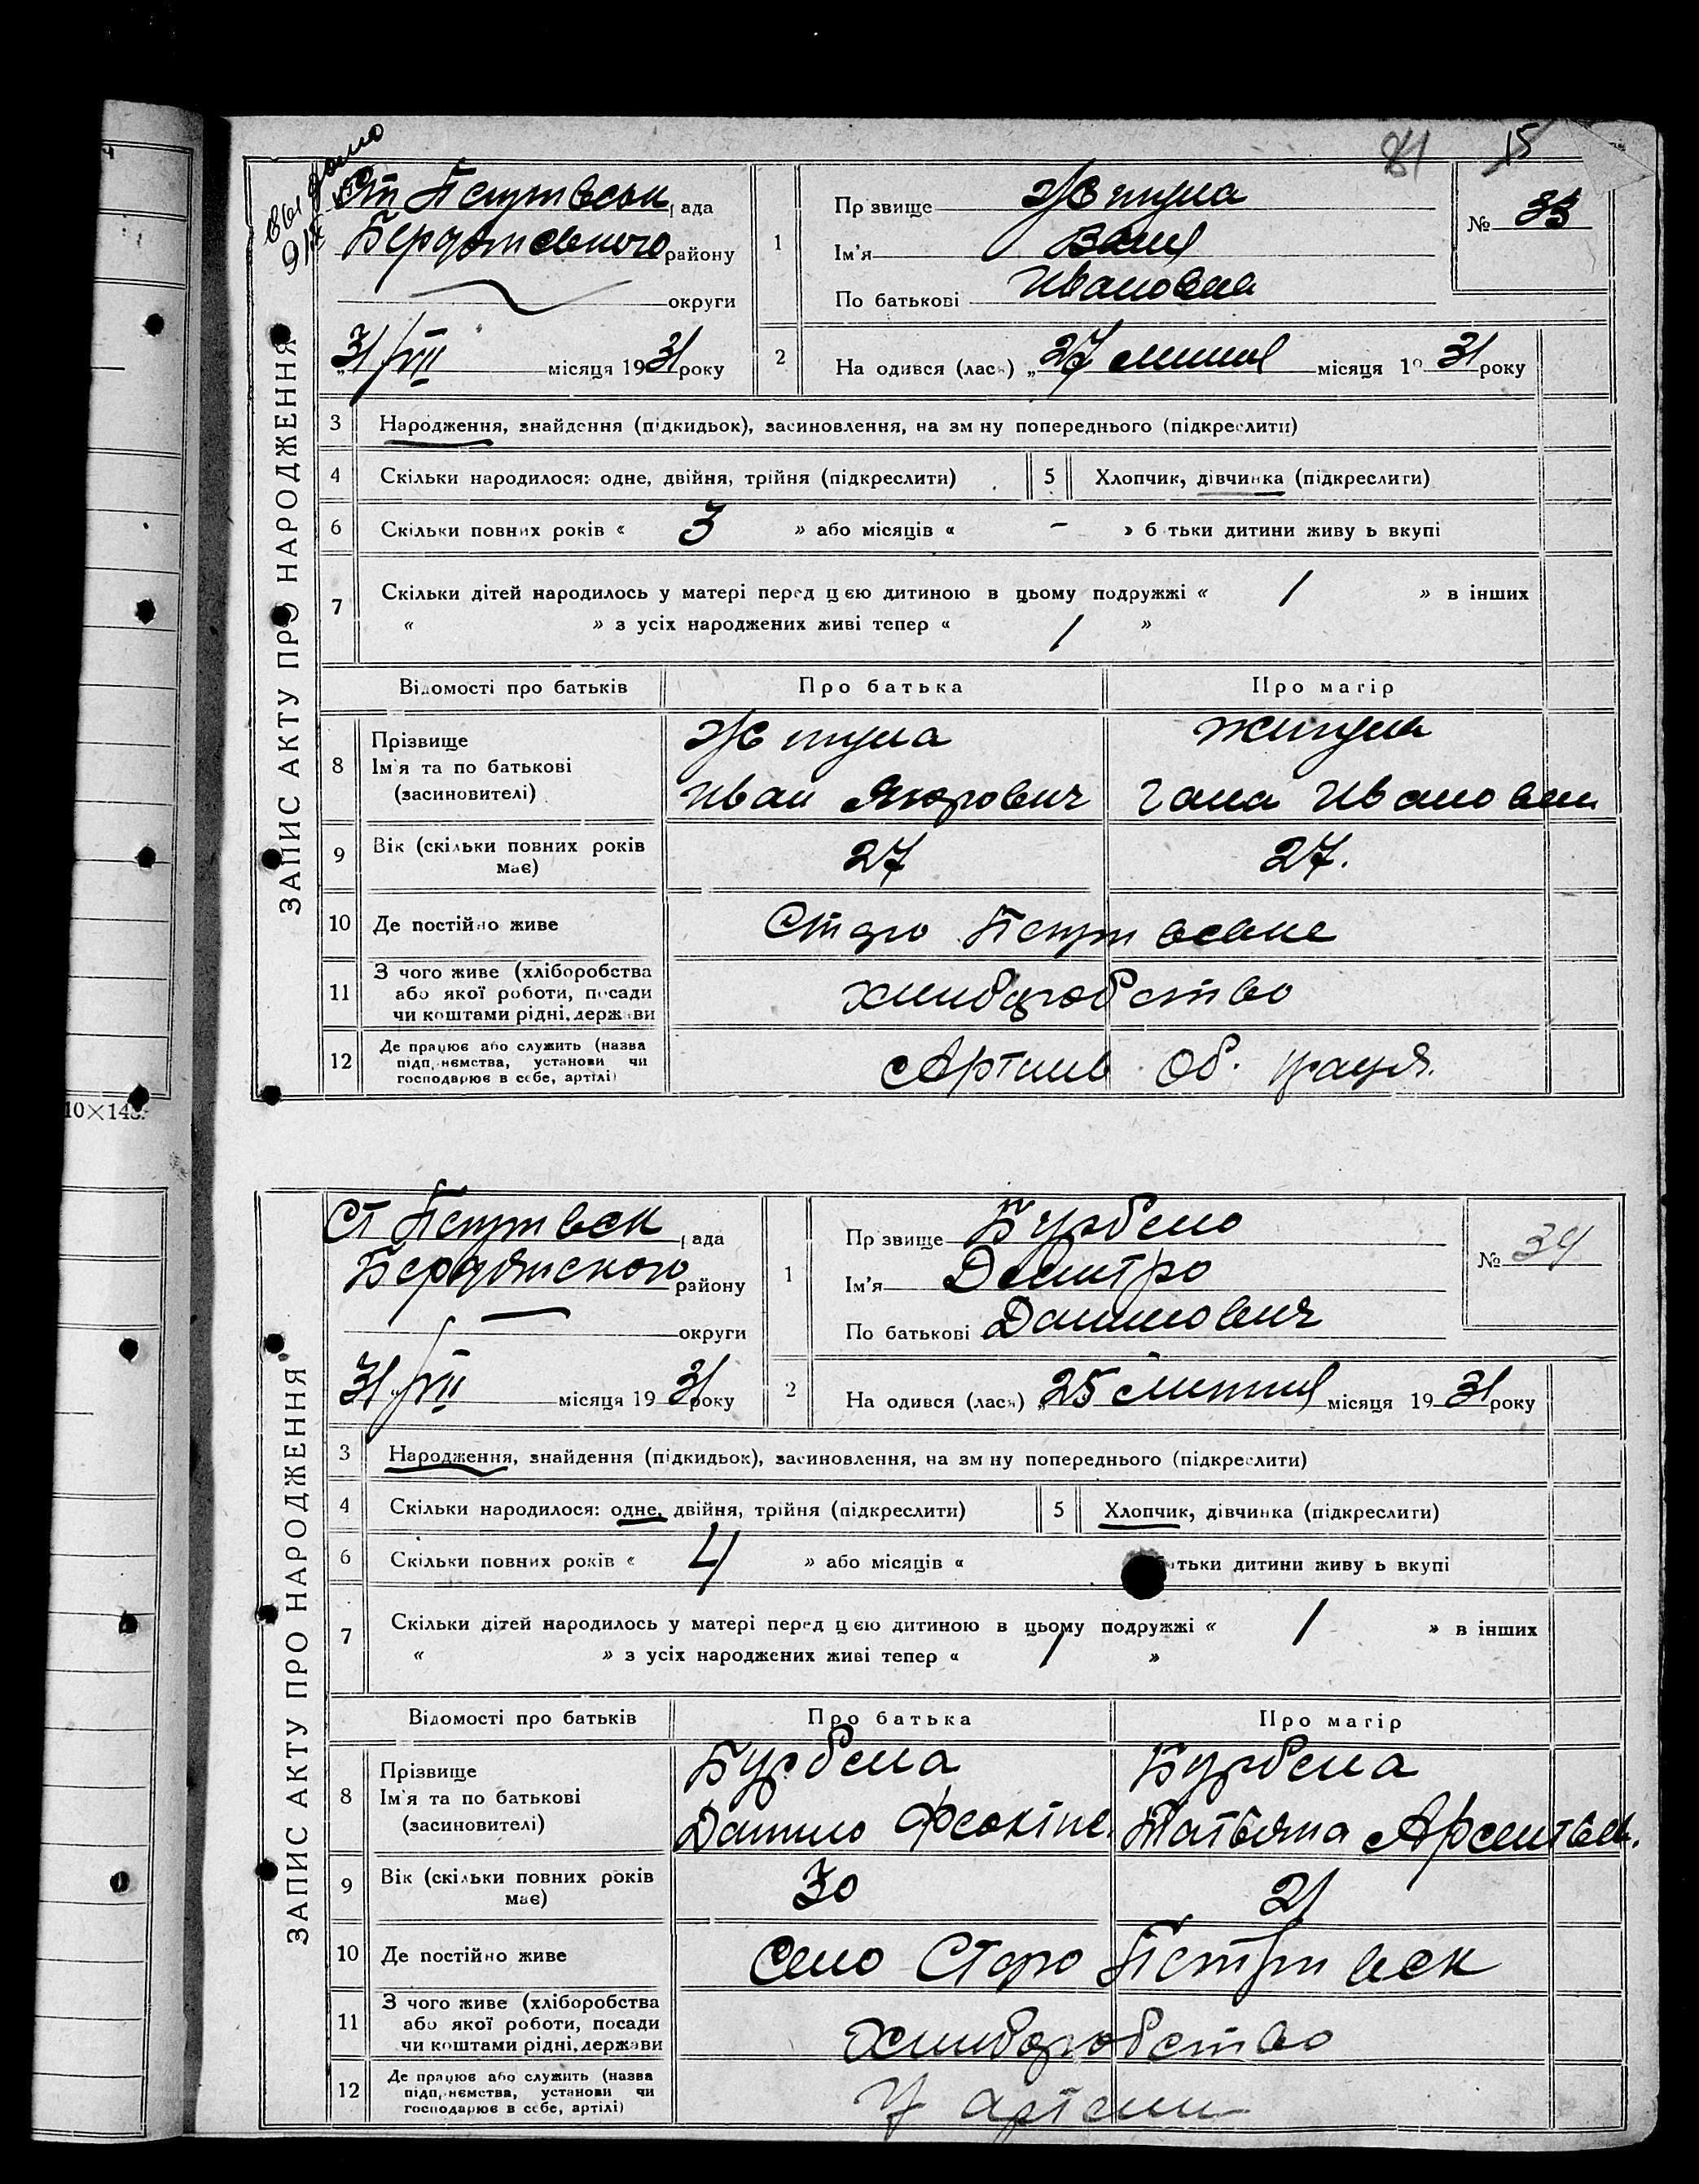 81 15
видано
Ст Петрівськ рада
Бердянського району
округи
31/VII місяця 1931 року
1
Прізвище Жигула
Ім'я Валя
По батькові Ивановна
№ 33
2 На одився (лась) „27 липня місяця 1931 року
ЗАПИС АКТУ ПРО НАРОДЖЕННЯ
3 Народження, знайдення (підкидьок), засиновлення, на зм ну попереднього (підкреслити)
4 Скільки народилося: одне, двійня, трійня (підкреслити) 5 Хлопчик, дівчинка (підкреслити)
6 Скільки повних років « 3 » або місяців « - » б тьки дитини живу ь вкупі
7 Скільки дітей народилось у матері перед цією дитиною в цьому подружжі « 1 » в інших
« » з усіх народжених живі тепер « 1 »
Відомості про батьків Про батька Про матір
8 Прізвище
Ім'я та по батькові
(засиновителі)
Жигула Жигула
Иван Якорович Гана Ивановна
9 Вік (скільки повних років має) 27 27.
10 Де постійно живе Старо Петрівське
11 З чого живе (хліборобства
або якої роботи, посади
чи коштами рідні, держави
хлиборобство
12 Де працює або служить (назва
підп, нємства, установи чи
господарює в себе, артілі)
Артиль Об. праця.
10×148
Ст Петрівськ рада
Бердянського району
округи
31/VII місяця 1931 року
1
Прізвище Бурбело
Ім'я Дмитро
По батькові Данилович
№ 34
2 На одився (лась) „25 липня місяця 1931 року
ЗАПИС АКТУ ПРО НАРОДЖЕННЯ
3 Народження, знайдення (підкидьок), засиновлення, на зм ну попереднього (підкреслити)
4 Скільки народилося: одне, двійня, трійня (підкреслити) 5 Хлопчик, дівчинка (підкреслити)
6 Скільки повних років « 4 » або місяців « тьки дитини живу ь вкупі
7 Скільки дітей народилось у матері перед цією дитиною в цьому подружжі « 1 » в інших
« » з усіх народжених живі тепер « 1 »
Відомості про батьків Про батька Про матір
8 Прізвище
Ім'я та по батькові
(засиновителі)
Бурбела Бурбела
Данило Феокти. Татьяна Арсентьев.
9 Вік (скільки повних років має) 30 21
10 Де постійно живе Село Старо Петрівськ
11 З чого живе (хліборобства
або якої роботи, посади
чи коштами рідні, держави
хлиборобство
12 Де працює або служить (назва
підп, нємства, установи чи
господарює в себе, артілі)
У артели